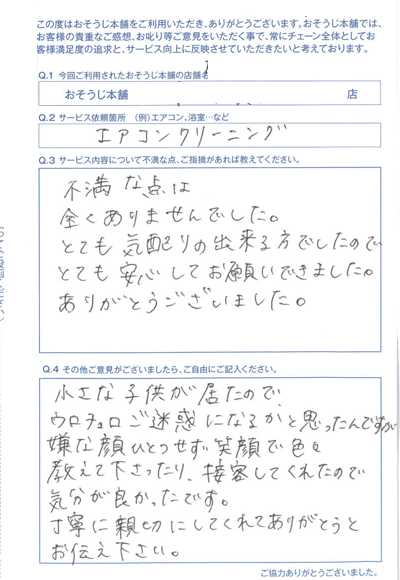 この度はおそうじ本舗をご利用いただき、ありがとうございます。おそうじ本舗では、
お客様の貴重なご感想、お叱り等ご意見をいただく事で、常にチェーン全体としてお
客様満足度の追求と、サービス向上に反映させていただきたいと考えております。
Q.1 今回ご利用されたおそうじ本舗の店舗名
おそうじ本舗 店
Q.2 サービス依頼箇所 (例)エアコン、浴室…など
エアコンクリーニング
Q.3 サービス内容について不満な点、ご指摘があれば教えてください。
不満な点は
全くありませんでした。
とても気配りの出来る方でしたので
とても安心してお願いできました。
ありがとうございました。
Q.4 その他ご意見がございましたら、ご自由にご記入ください。
小さな子供が居たので、
ウロチョロご迷惑になるかと思ったんですが
嫌な顔ひとつせず笑顔で色々
教えて下さったり、接客してくれたので
気分が良かったです。
丁寧に親切にしてくれてありがとうと
お伝え下さい。
ご協力ありがとうございました。